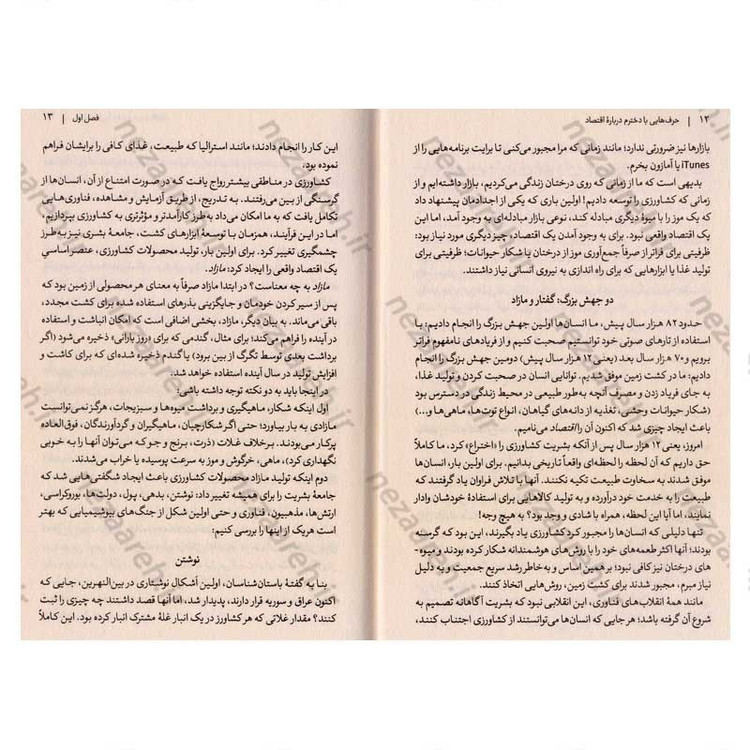 ۱۲ | حرف‌هایی با دخترم دربارهٔ اقتصاد
بازارها نیز ضرورتی ندارد؛ مانند زمانی که مرا مجبور می‌کنی تا برایت برنامه‌هایی را از
iTunes یا آمازون بخرم.
بدیهی است که ما از زمانی که روی درختان زندگی می‌کردیم، بازار داشته‌ایم و از
زمانی که کشاورزی را توسعه دادیم! اولین باری که یکی از اجدادمان پیشنهاد داد
که یک موز را با میوهٔ دیگری مبادله کند، نوعی بازار مبادله‌ای به وجود آمد، اما این
یک اقتصاد واقعی نبود. برای به وجود آمدن یک اقتصاد، چیز دیگری مورد نیاز بود؛
ظرفیتی برای فراتر از صرفاً جمع‌آوری موز از درختان یا شکار حیوانات؛ ظرفیتی برای
تولید غذا یا ابزارهایی که برای راه اندازی به نیروی انسانی نیاز داشتند.
دو جهش بزرگ: گفتار و مازاد
حدود ۸۲ هزار سال پیش، ما انسان‌ها اولین جهش بزرگ را انجام دادیم: با
استفاده از تارهای صوتی خود توانستیم صحبت کنیم و از فریادهای نامفهوم فراتر
برویم و ۷۰ هزار سال بعد (یعنی ۱۲ هزار سال پیش) دومین جهش بزرگ را انجام
دادیم: ما در کشت زمین موفق شدیم. توانایی انسان در صحبت کردن و تولید غذا،
به جای فریاد زدن و مصرف آنچه به‌طور طبیعی در محیط زندگی در دسترس بود
(شکار حیوانات وحشی، تغذیه از دانه‌های گیاهان، انواع توت‌ها، ماهی‌ها و...)
باعث ایجاد چیزی شد که اکنون آن را اقتصاد می‌نامیم.
امروز، یعنی ۱۲ هزار سال پس از آنکه بشریت کشاورزی را «اختراع» کرد، ما کاملاً
حق داریم که آن لحظه را لحظه‌ای واقعاً تاریخی بدانیم. برای اولین بار، انسان‌ها
موفق شدند به سخاوت طبیعت تکیه نکنند. آنها با تلاش فراوان یاد گرفتند که
طبیعت را به خدمت خود درآورده و به تولید کالاهایی برای استفادهٔ خودشان وادار
نمایند، اما آیا این لحظه، همراه با شادی و وجد بود؟ به هیچ وجه!
تنها دلیلی که انسان‌ها را مجبور کرد کشاورزی یاد بگیرند، این بود که گرسنه
بودند؛ آنها اکثر طعمه‌های خود را با روش‌های هوشمندانه شکار کرده بودند و میوه‌-
های درختان نیز کافی نبود؛ بر همین اساس و به‌خاطر رشد سریع جمعیت و به دلیل
نیاز مبرم، مجبور شدند برای کشت زمین، روش‌هایی اتخاذ کنند.
مانند همهٔ انقلاب‌های فناوری، این انقلابی نبود که بشریت آگاهانه تصمیم به
شروع آن گرفته باشد؛ هر جایی که انسان‌ها می‌توانستند از کشاورزی اجتناب کنند،
فصل اول | ۱۳
این کار را انجام دادند؛ مانند استرالیا که طبیعت، غذای کافی را برایشان فراهم
نموده بود.
کشاورزی در مناطقی بیشتر رواج یافت که در صورت امتناع از آن، انسان‌ها از
گرسنگی از بین می‌رفتند. به تدریج، از طریق آزمایش و مشاهده، فناوری‌هایی
تکامل یافت که به ما امکان می‌داد به طرز کارآمدتر و مؤثرتری به کشاورزی بپردازیم،
اما در این فرآیند، همزمان با توسعهٔ ابزارهای کشت، جامعهٔ بشری نیز به‌طرز
چشمگیری تغییر کرد. برای اولین بار، تولید محصولات کشاورزی، عنصر اساسیِ
یک اقتصاد واقعی را ایجاد کرد: مازاد.
مازاد به چه معناست؟ در ابتدا مازاد صرفاً به معنای هر محصولی از زمین بود که
پس از سیر کردن خودمان و جایگزینی بذرهای استفاده شده برای کشت مجدد،
باقی می‌ماند. به بیان دیگر، مازاد، بخشی اضافی است که امکان انباشت و استفاده
در آینده را فراهم می‌کند؛ برای مثال، گندمی که برای «روز بارانی» ذخیره می‌شود (اگر
برداشت بعدی توسط تگرگ از بین برود) یا گندم ذخیره شده‌ای که برای کاشت و
افزایش تولید در سال آینده استفاده خواهد شد.
در اینجا باید به دو نکته توجه داشته باشی:
اول اینکه شکار، ماهیگیری و برداشت میوه‌ها و سبزیجات، هرگز نمی‌توانست
مازادی به بار بیاورد؛ حتی اگر شکارچیان، ماهیگیران و گردآورندگان، فوق‌العاده
پرکار می‌بودند. برخلاف غلات (ذرت، برنج و جو که می‌توان آنها را به خوبی
نگهداری کرد)، ماهی، خرگوش و موز به سرعت پوسیده یا خراب می‌شدند.
دوم اینکه تولید مازاد محصولات کشاورزی باعث ایجاد شگفتی‌هایی شد که
جامعهٔ بشریت را برای همیشه تغییر داد: نوشتن، بدهی، پول، دولت‌ها، بوروکراسی،
ارتش‌ها، مذهبیون، فناوری و حتی اولین شکل از جنگ‌های بیوشیمیایی که بهتر
است هر یک از اینها را بررسی کنیم:
نوشتن
بنا به گفتهٔ باستان‌شناسان، اولین أشکال نوشتاری در بین‌النهرین، جایی که
اکنون عراق و سوریه قرار دارند، پدیدار شد، اما آنها قصد داشتند چه چیزی را ثبت
کنند؟ مقدار غلاتی که هر کشاورز در یک انبار غلهٔ مشترک انبار کرده بود. این کاملاً
nezaareh.ir